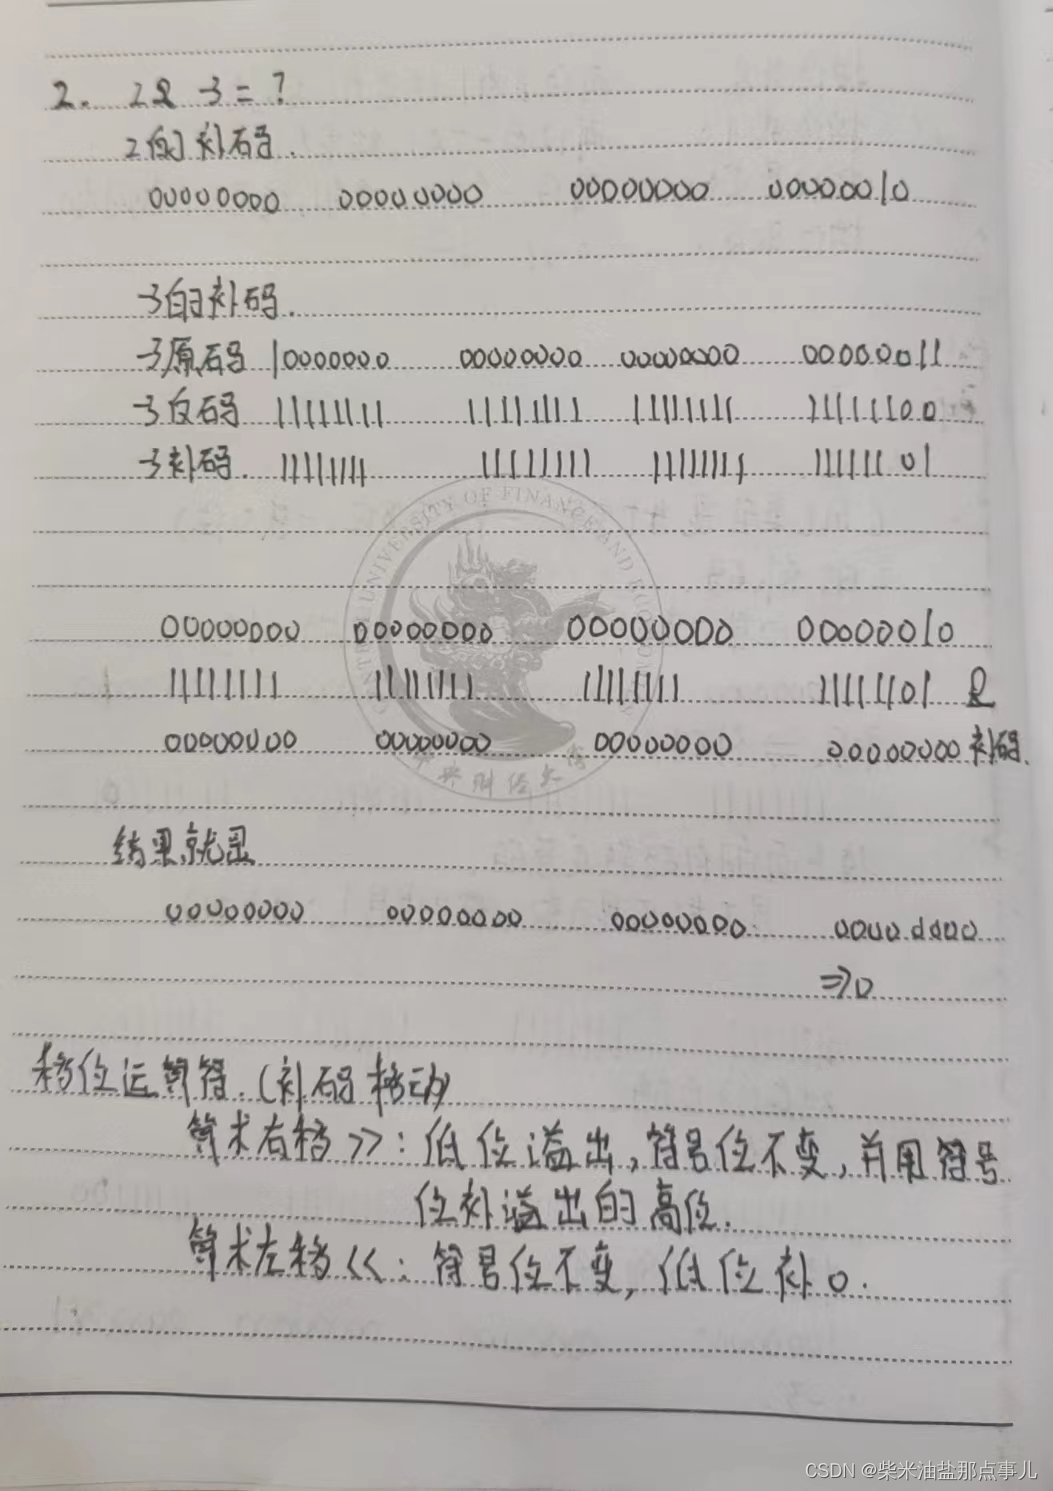 2. 2& -3 = ?
2的补码.
00000000 00000000 00000000 00000010
-3的补码.
-3原码 10000000 00000000 00000000 00000011
-3反码 11111111 11111111 11111111 11111100
-3补码. 11111111 11111111 11111111 11111101
00000000 00000000 00000000 00000010
11111111 11111111 11111111 11111101 &
00000000 00000000 00000000 00000000 补码.
结果就是
00000000 00000000 00000000 00000000
⇒0
移位运算符.(补码移动)
算术右移 >>: 低位溢出,符号位不变,并用符号
位补溢出的高位.
算术左移 <<: 符号位不变, 低位补0.
UNIVERSITY OF FINANCE AND ECONOMICS
中央财经大学
CSDN @柴米油盐那点事儿